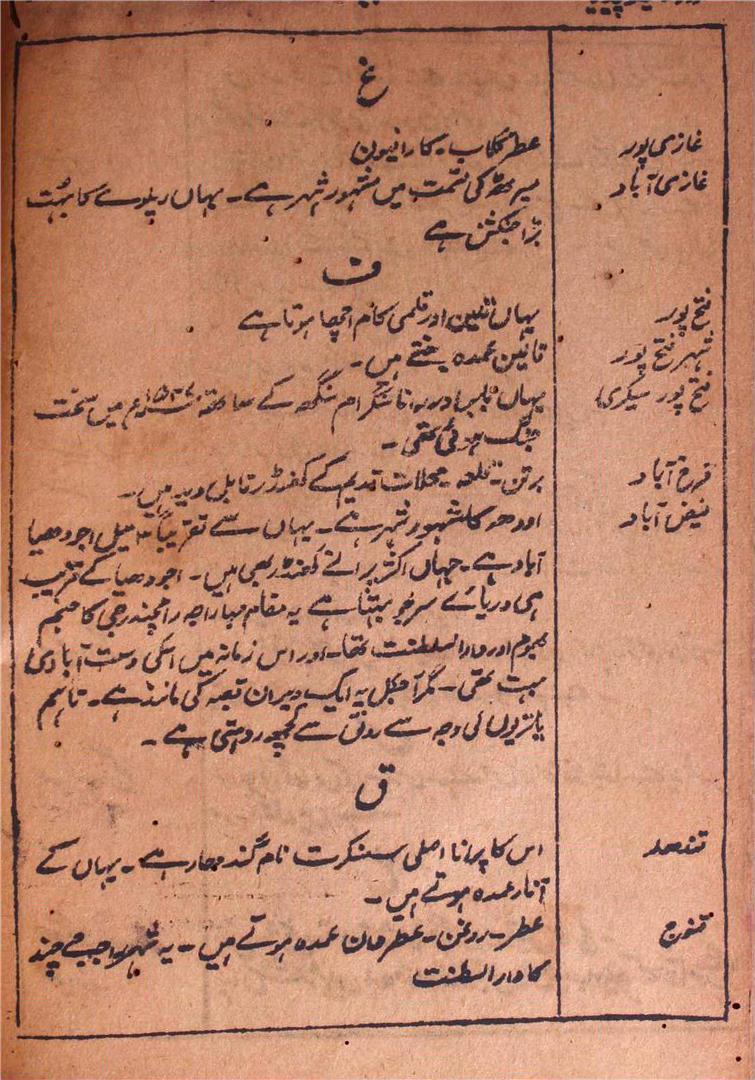 غ
غازی پور عطر گلاب۔ کار افیون
غازی آباد میرٹھ کی قسمت میں مشہور شہر ہے۔ یہاں ریلوے کا بہت
بڑا جنکشن ہے
ف
فتح پور یہاں اور قلمی کام اچھا ہوتا ہے
شہر فتح پور قالین عمدہ بنتے ہیں۔
فتح پور سیکری یہاں بابر اور رانا سنگرام سنگھ کے ساتھ ۱۵۲۷ء میں سخت
جنگ ہوئی تھی۔
فرخ آباد برتن۔ قلعہ۔ محلات قدیم کے کھنڈر قابل دید ہیں۔
فیض آباد اودھ کا مشہور شہر ہے۔ یہاں سے تقریباً ۳ میل اجودھیا
آباد ہے۔ جہاں اکثر پرانے کھنڈر بھی ہیں۔ اجودھیا کے قریب
ہی دریائے سرجو بہتا ہے یہ مقام مہاراجہ رامچندرجی کا جنم
بھوم اور دار السلطنت تھا۔ اور اس زمانہ میں اسکی وسعت آبادی
بہت تھی۔ مگر آجکل یہ ایک ویران قصبہ کی مانند ہے۔ تاہم
یاتریوں کی وجہ سے رونق سے کچھ رہتی ہے۔
ق
قندھار اس کا پرانا اصلی سنسکرت نام گندھار ہے۔ یہاں کے
انار عمدہ ہوتے ہیں۔
قنوج عطر۔ روغن۔ عطر دان عمدہ ہوتے ہیں۔ یہ شہر راجہ جے چند
کا دار السطنت